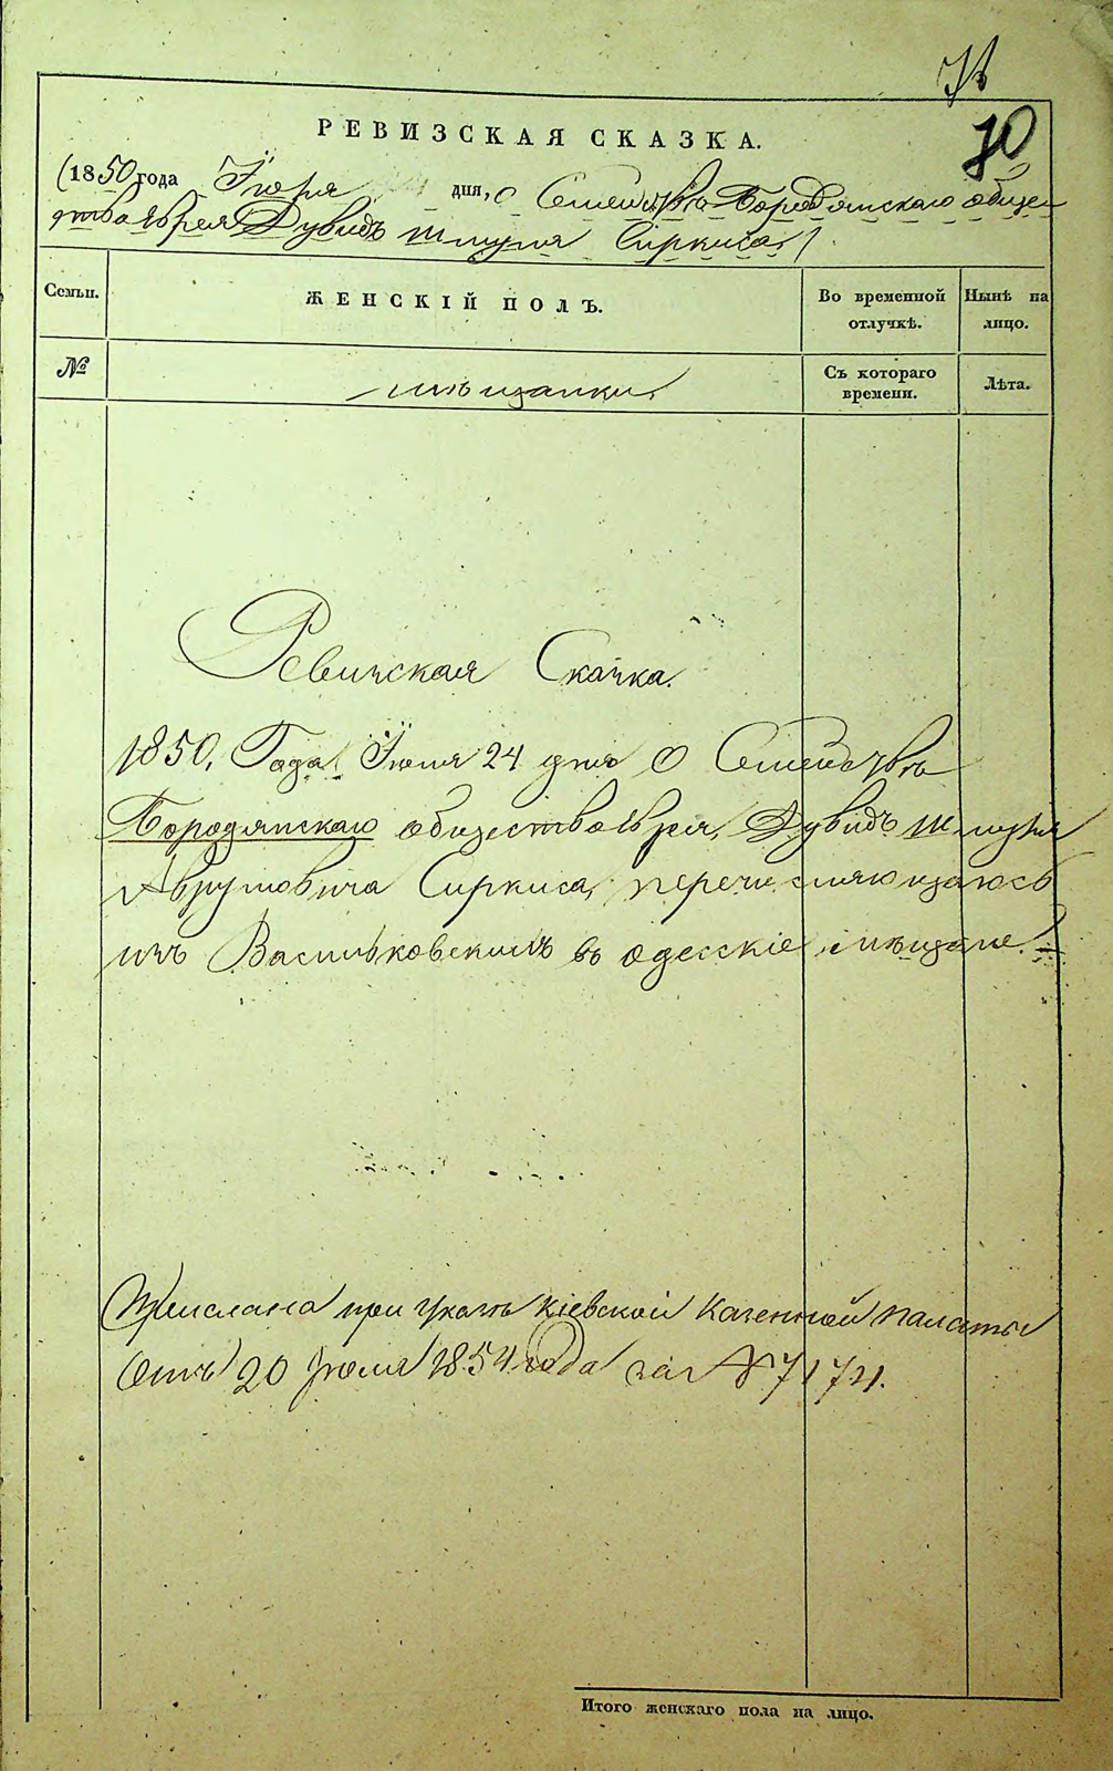 70
РЕВИЗСКАЯ СКАЗКА.
(1850 года Іюня дня, о Семействѣ Бородянскаго общес
тва Еврея Дувидъ Шмуля Сиркиса)
Семьи.
ЖЕНСКІЙ ПОЛЪ.
Во временной отлучкѣ.
Нынѣ на лицо.
№
мѣщанки.
Съ котораго времени.
Лѣта.
Ревизская Сказка.
1850, Года Іюня 24 дня О Семействѣ
Бородянскаго общества Еврея, Дувидъ Шмуля
Аврумовича Сиркиса, перечисляющагось
изъ Васильковскихъ въ одесскіе мѣщане.
Прислана при Указѣ Кіевской Казенной палаты
Отъ 20 Іюля 1854 года за № 7174.
Итого женскаго пола на лицо.